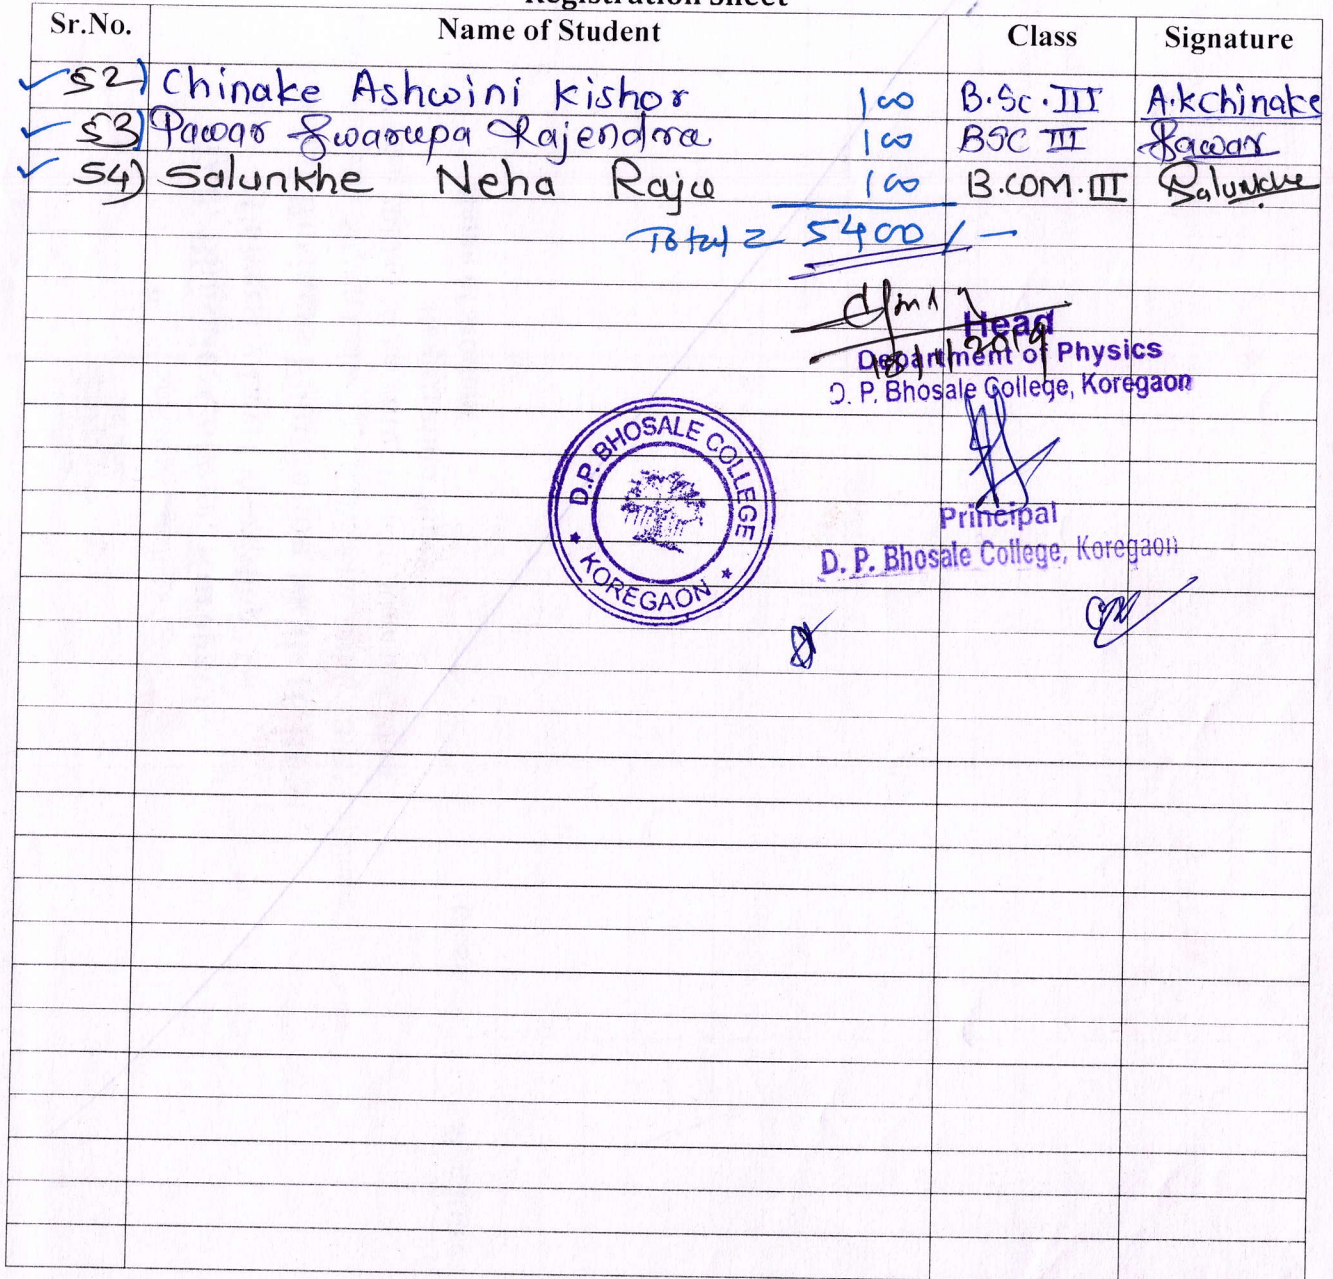 Registration Sheet
Sr.No. Name of Student Class Signature
52) Chinake Ashwini Kishor 100 B.Sc.III A.kchinake
53) Pawar Swarupa Rajendra 100 BSC III Pawar
54) Salunkhe Neha Raju 100 B.COM.III Salunkhe
Total = 5400/-
Head
18/1/2019
Department of Physics
D. P. Bhosale College, Koregaon
D.P. BHOSALE COLLEGE
★ KOREGAON ★
Principal
D. P. Bhosale College, Koregaon